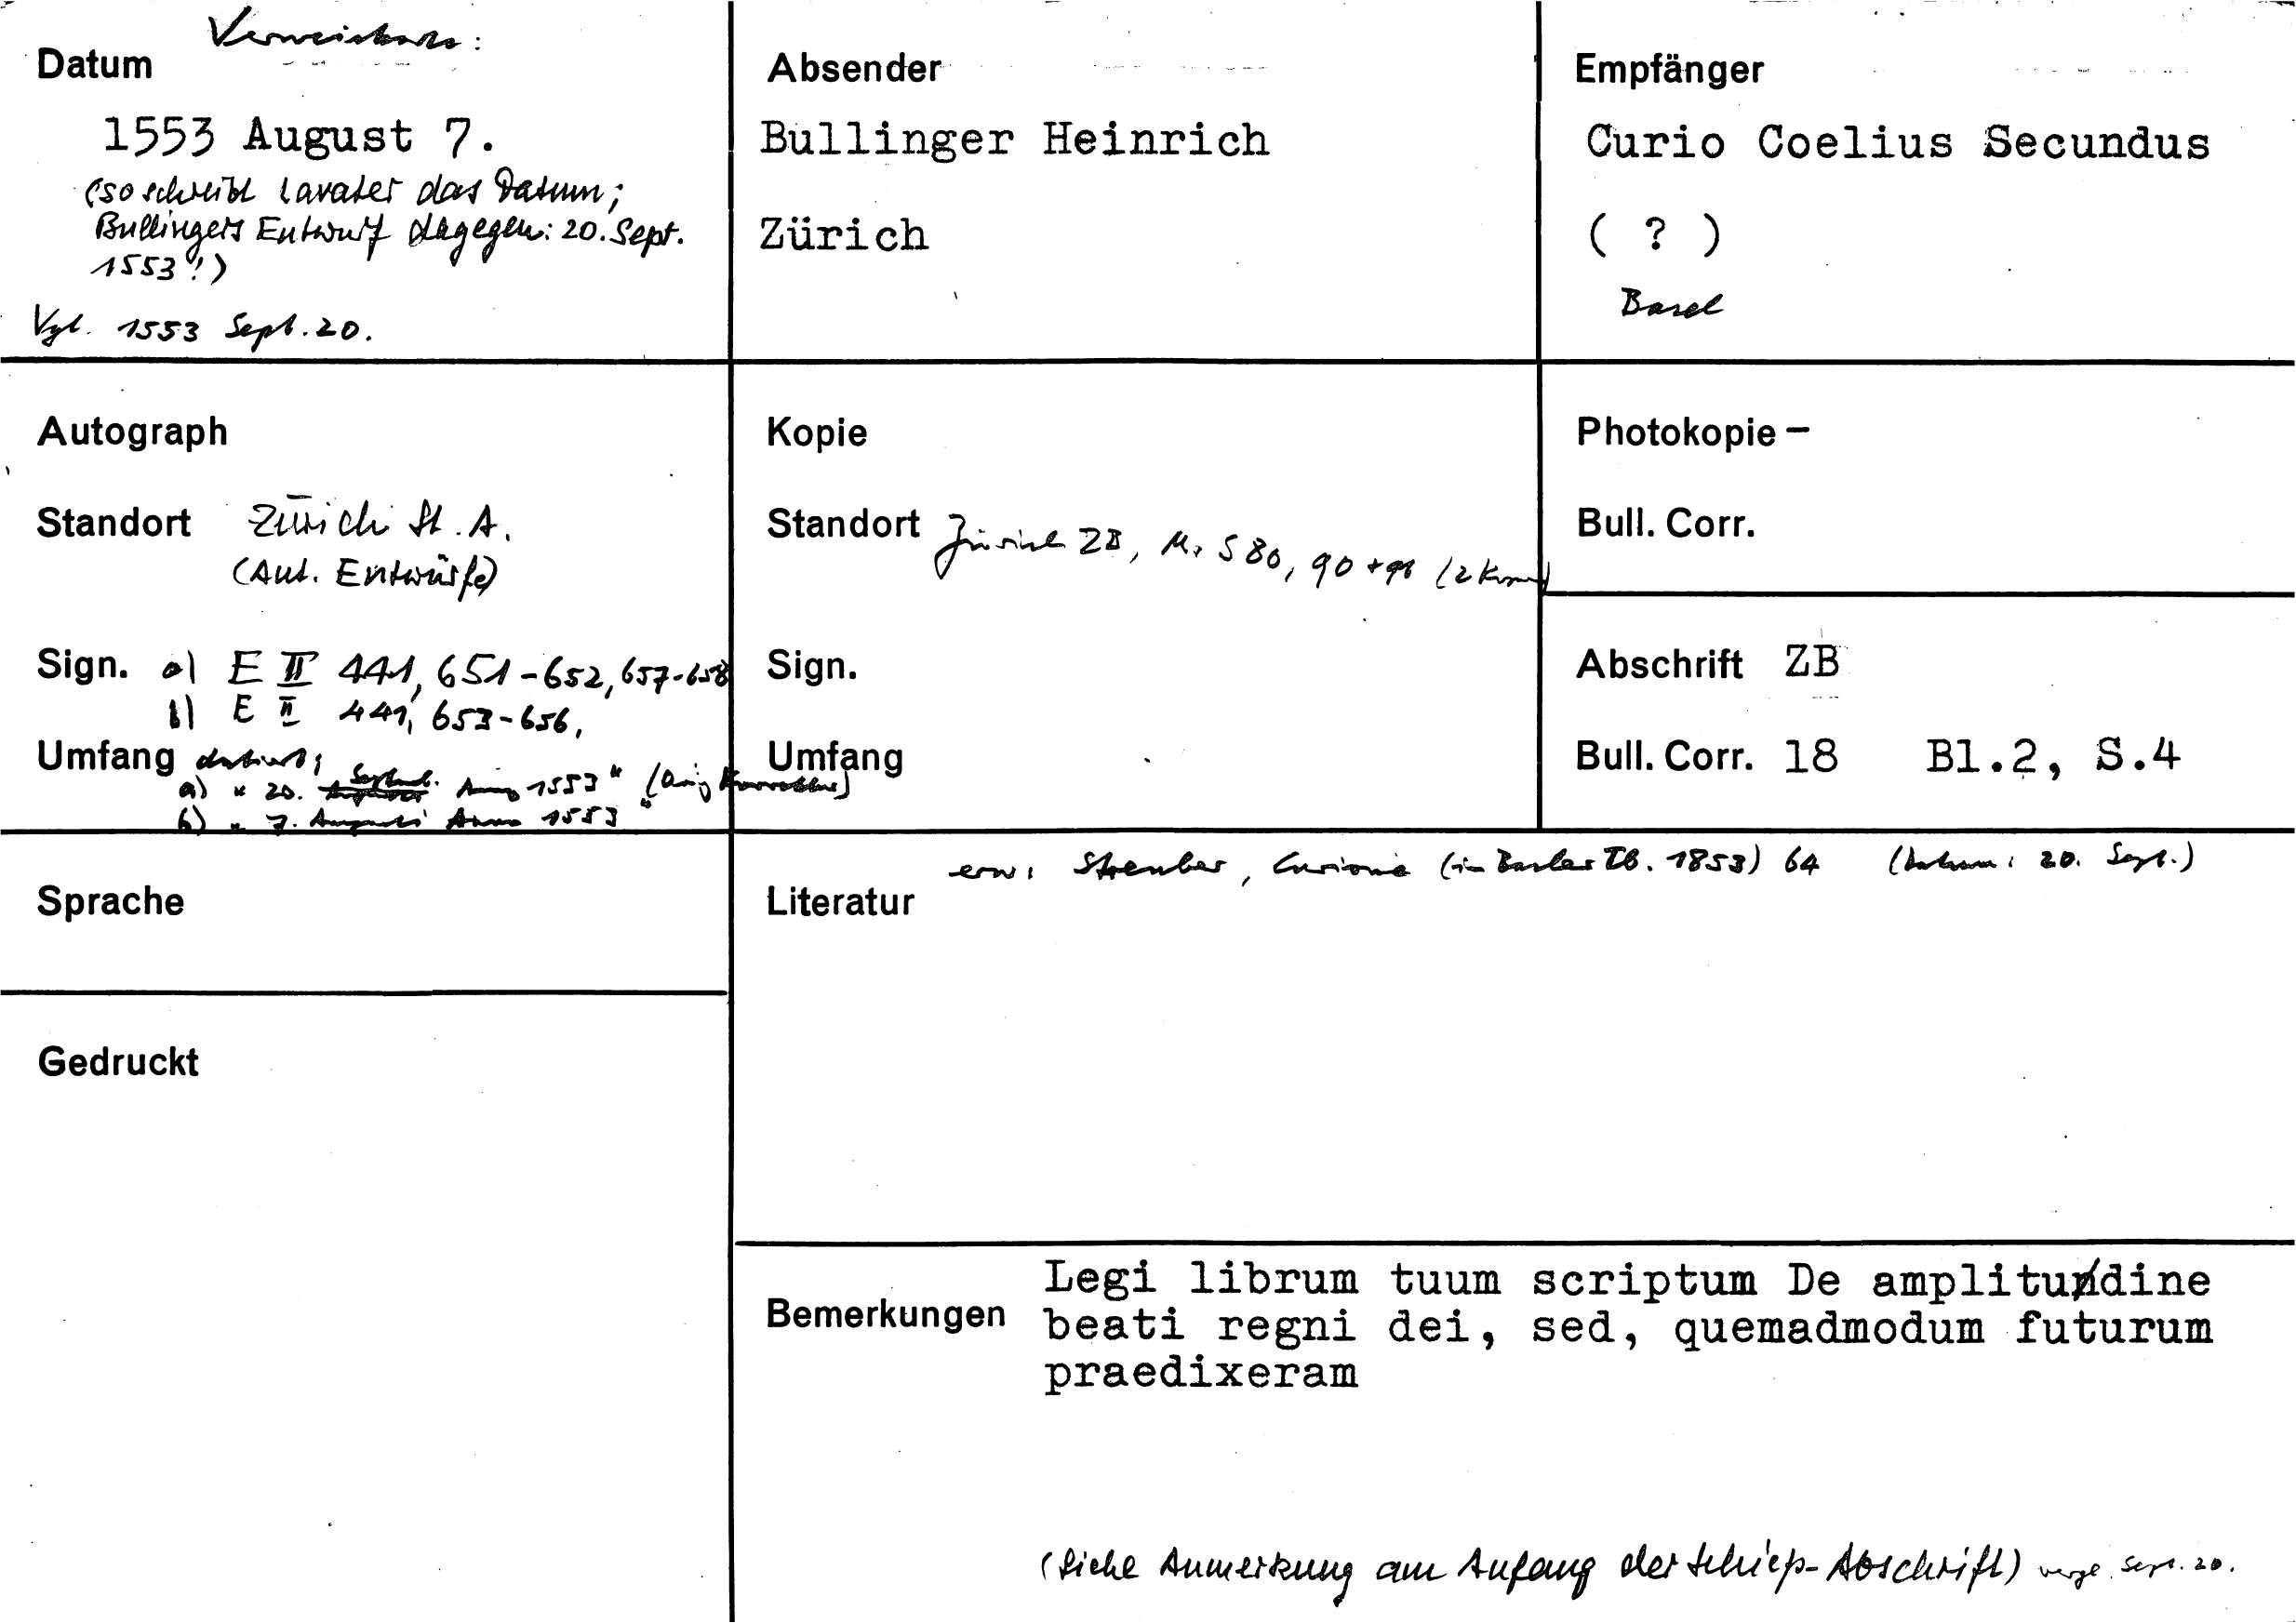 Datum
1553 August 7.
(so schreibt Lavater das Datum;
Bullingers Entwurf dagegen: 20. Sept.
1553!)
Vgl. 1553 Sept. 20.
Absender
Bullinger Heinrich
Zürich
Empfänger
Curio Coelius Secundus
( ? )
Basel
Autograph
Standort Zürich St. A.
(Aut. Entwürfe)
Sign. a) E II 441, 651-652, 657-658
b) E II 441, 653-656,
Umfang datiert:
a) "20. Septemb. Anno 1553"
b) "7. Augusti Anno 1553"
Kopie
Standort Zürich ZB, Ms S 80, 90 +
Sign.
Umfang
Photokopie –
Bull. Corr.
Abschrift ZB
Bull. Corr. 18 Bl.2, S.4
Sprache
Gedruckt
erw: Streuber, Curione (in Basler TB. 1853) 64 (Datum: 20. Sept.)
Literatur
Bemerkungen
Legi librum tuum scriptum De amplitudine
beati regni dei, sed, quemadmodum futurum
praedixeram
(Siehe Anmerkung am Anfang der Schieß-Abschrift) Sept. 20.